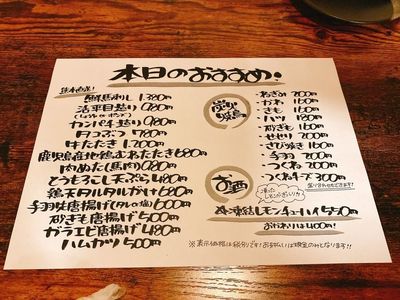 本日のおすすめ!
熊本直送!
鮮馬刺し 1,380円
活平目造り 980円
カンパチ造り 980円
タコぶつ 780円
牛たたき 1,200円
鹿児島産地鶏むねたたき 680円
肉めんたい(馬肉) 980円
とうもろこし天ぷら 480円
鶏天タルタルがけ 680円
手羽先唐揚げ(タレor塩) 600円
砂ぎも唐揚げ 500円
ガラエビ唐揚げ 480円
ハムカツ 500円
炭火焼鳥
・ねぎみ 200円
・かわ 160円
・きも 160円
・ハツ 180円
・砂ぎも 160円
・せせり 200円
・さび焼き 160円
・手羽 200円
・つくね 200円
・つくねチーズ 300円
盛り合わせもできます!
お酒
凍ったレモンがぎっしり!!
凍結レモンチューハイ 550円
おかわりは400円!
※表示価格は税分りです!お支払いは現金のみとなります!!